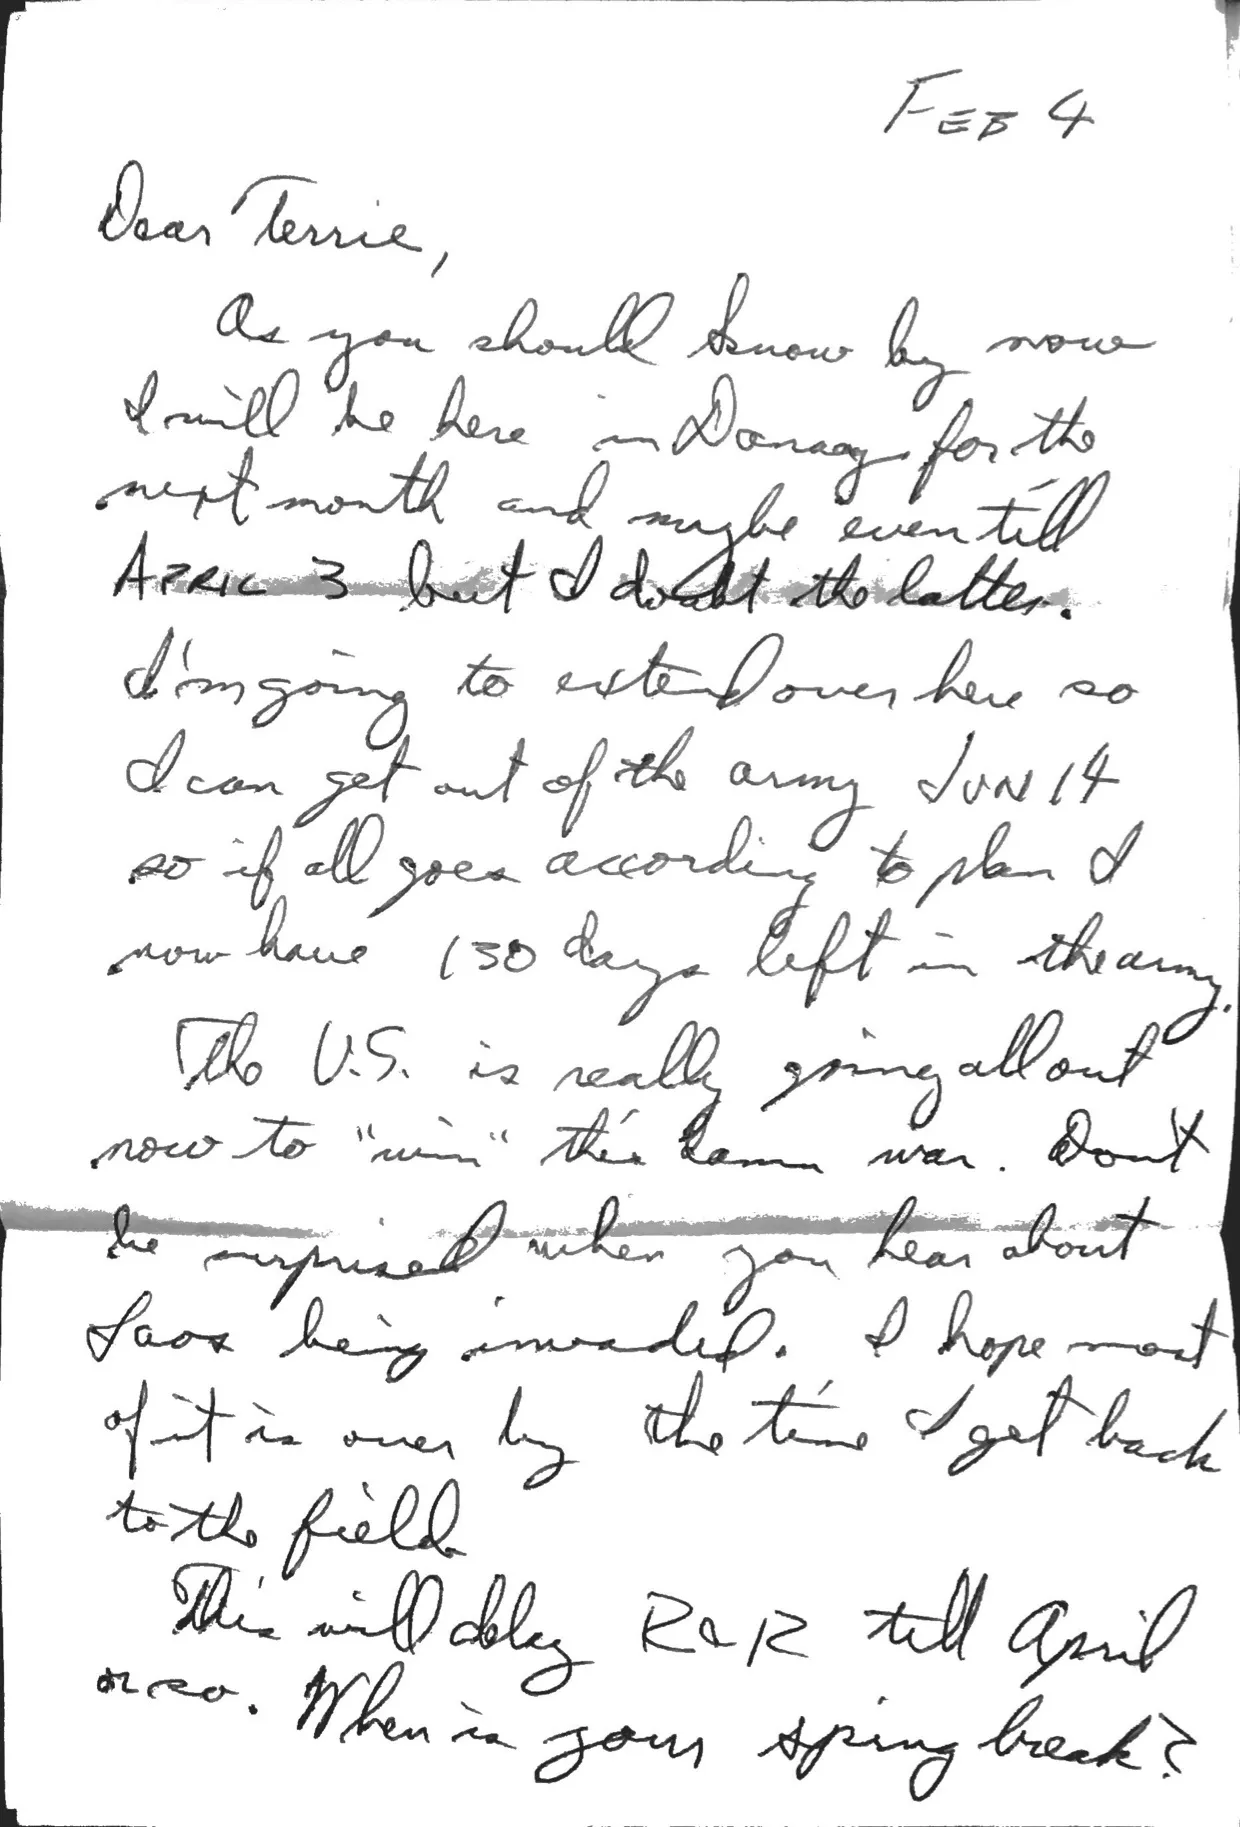 FEB 4
Dear Terrie,
As you should know by now
I will be here in Danag for the
next month and maybe even till
APRIL 3 but I doubt the latter.
I'm going to extend over here so
I can get out of the army JUN 14
so if all goes according to plan I
now have 130 days left in the army.
The U.S. is really going all out
now to "win" this damn war. Don't
be surprised when you hear about
Laos being invaded. I hope most
of it is over by the time I get back
to the field.
This will delay R&R till April
or so. When is your spring break?